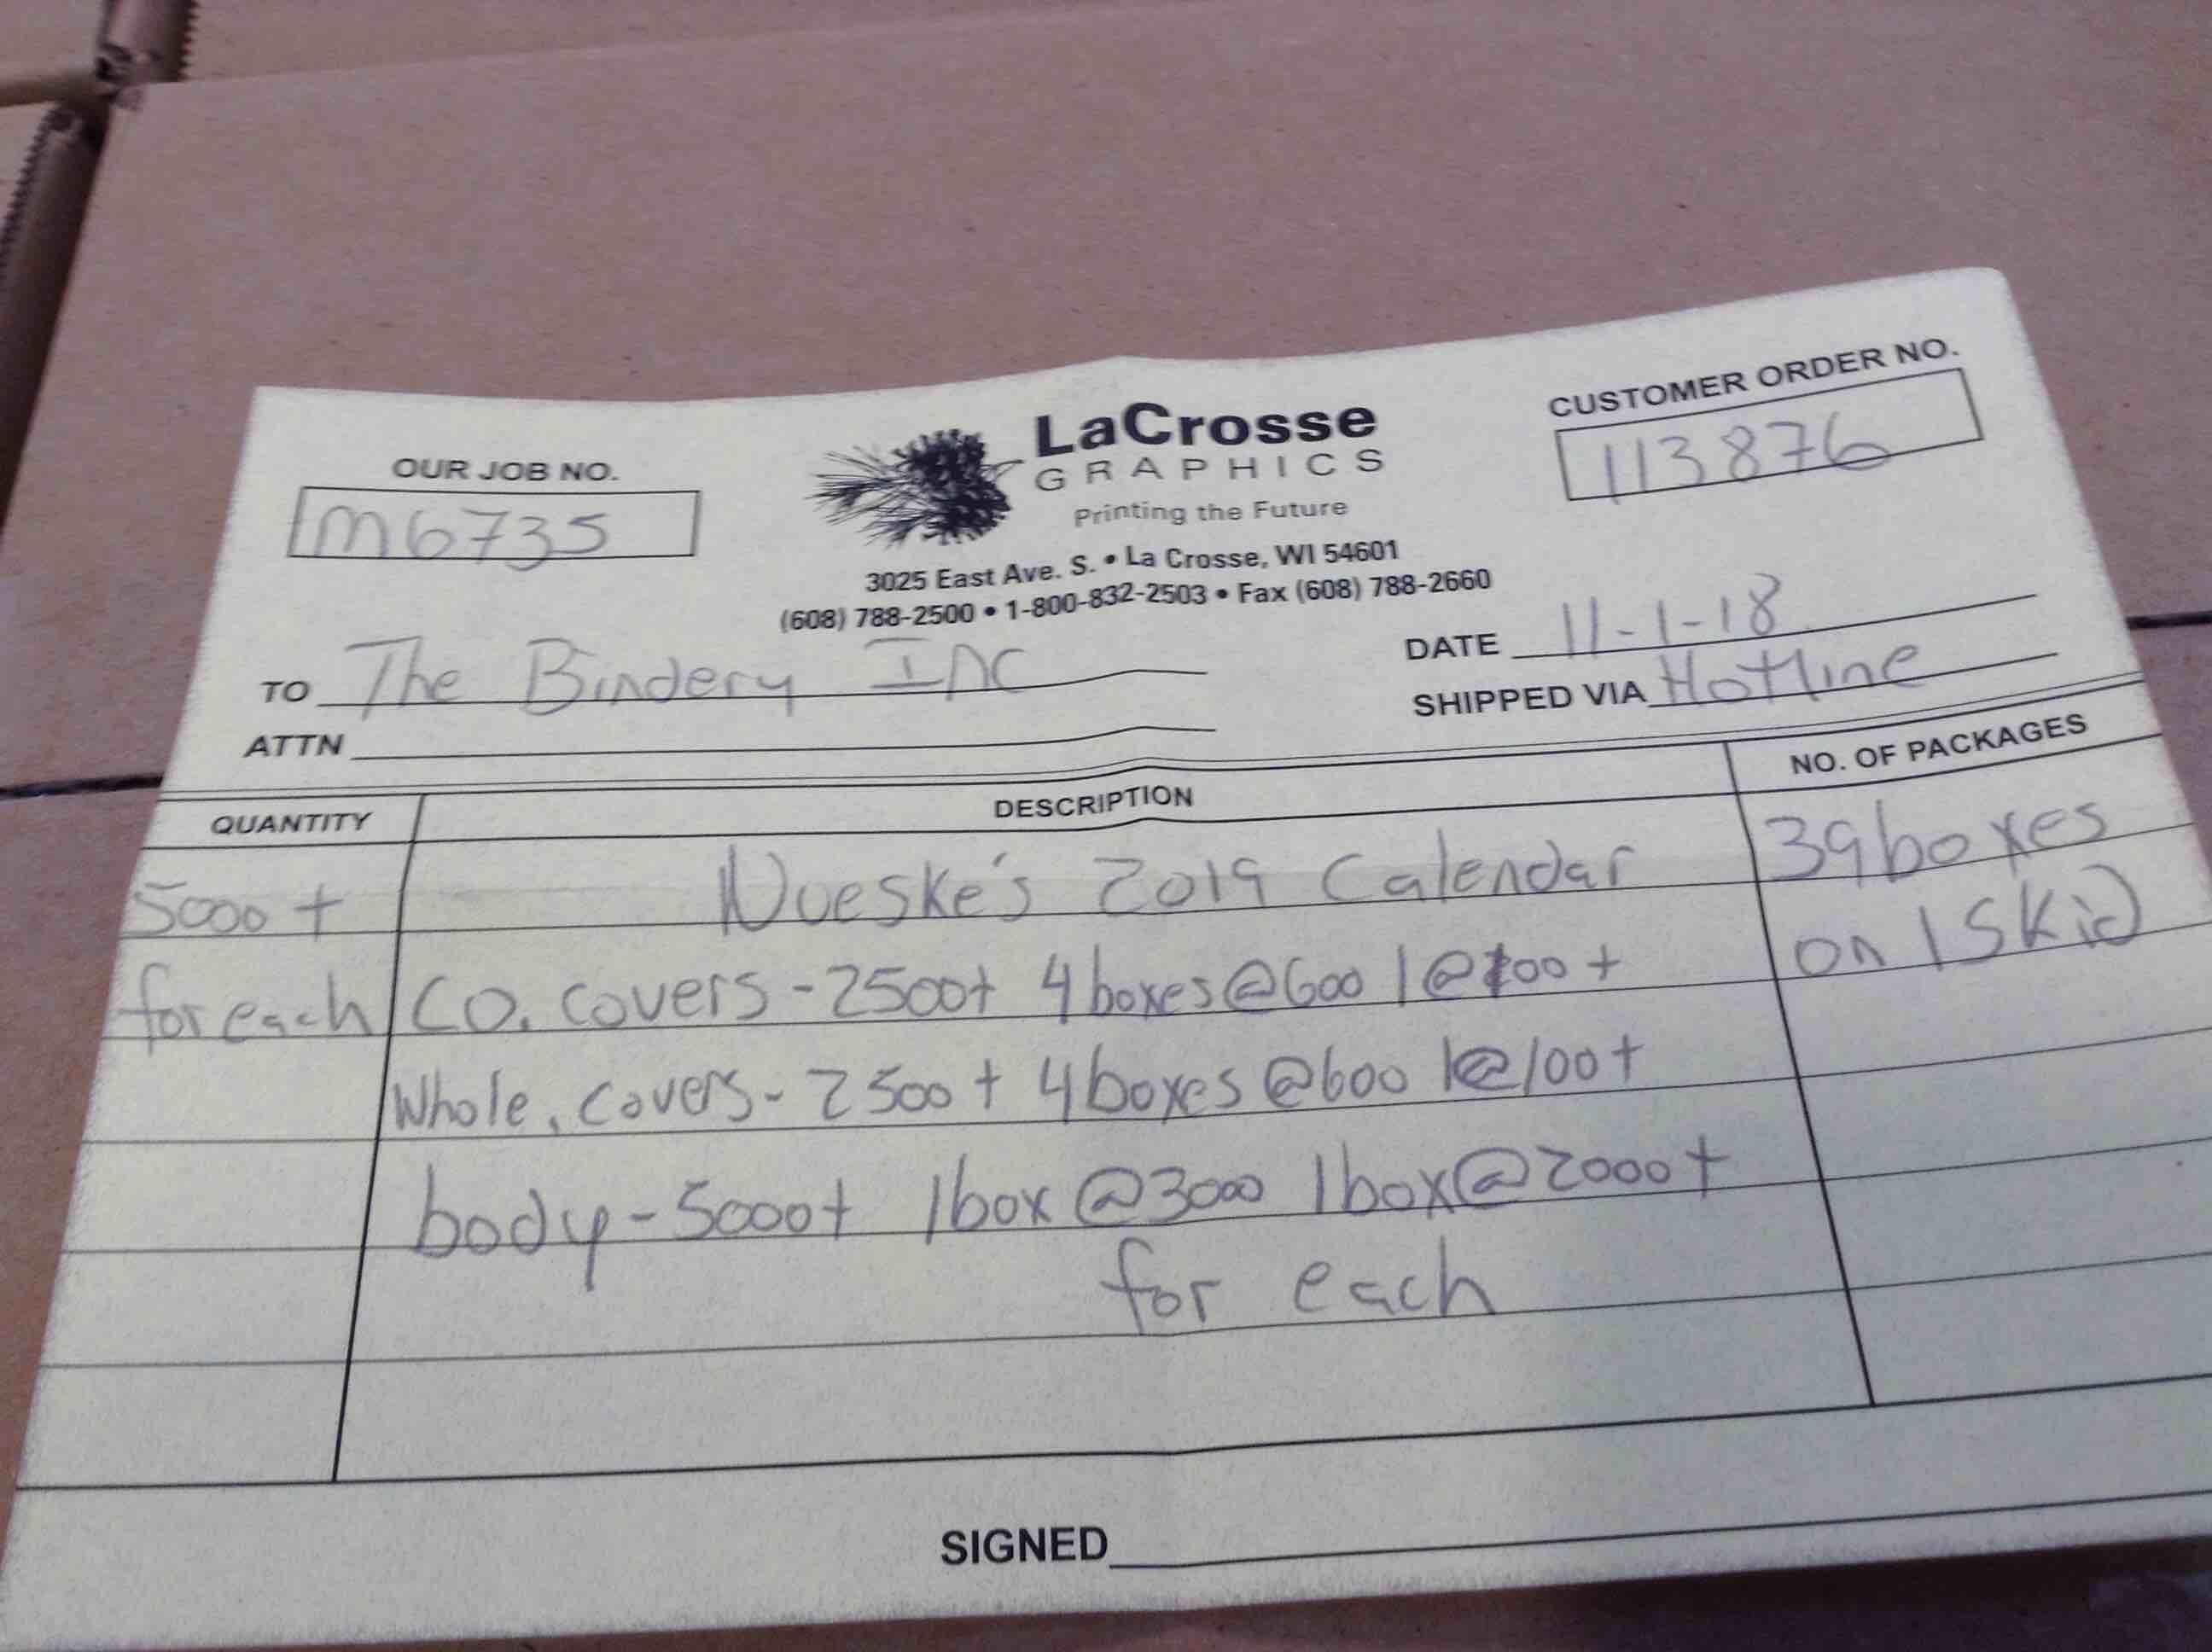 OUR JOB NO.
M6735
LaCrosse
GRAPHICS
Printing the Future
3025 East Ave. S. • La Crosse, WI 54601
(608) 788-2500 • 1-800-832-2503 • Fax (608) 788-2660
CUSTOMER ORDER NO.
113876
TO The Bindery Inc
ATTN
DATE 11-1-18
SHIPPED VIA Hotline
QUANTITY DESCRIPTION NO. OF PACKAGES
5000+ Nueske's 2019 Calendar 39 boxes
for each CO. covers - 2500+ 4 boxes @ 600 1 @ 100+ on 1 skid
Whole. covers - 2500+ 4 boxes @ 600 1 @ 100+
body - 5000+ 1 box @ 3000 1 box @ 2000+
for each
SIGNED